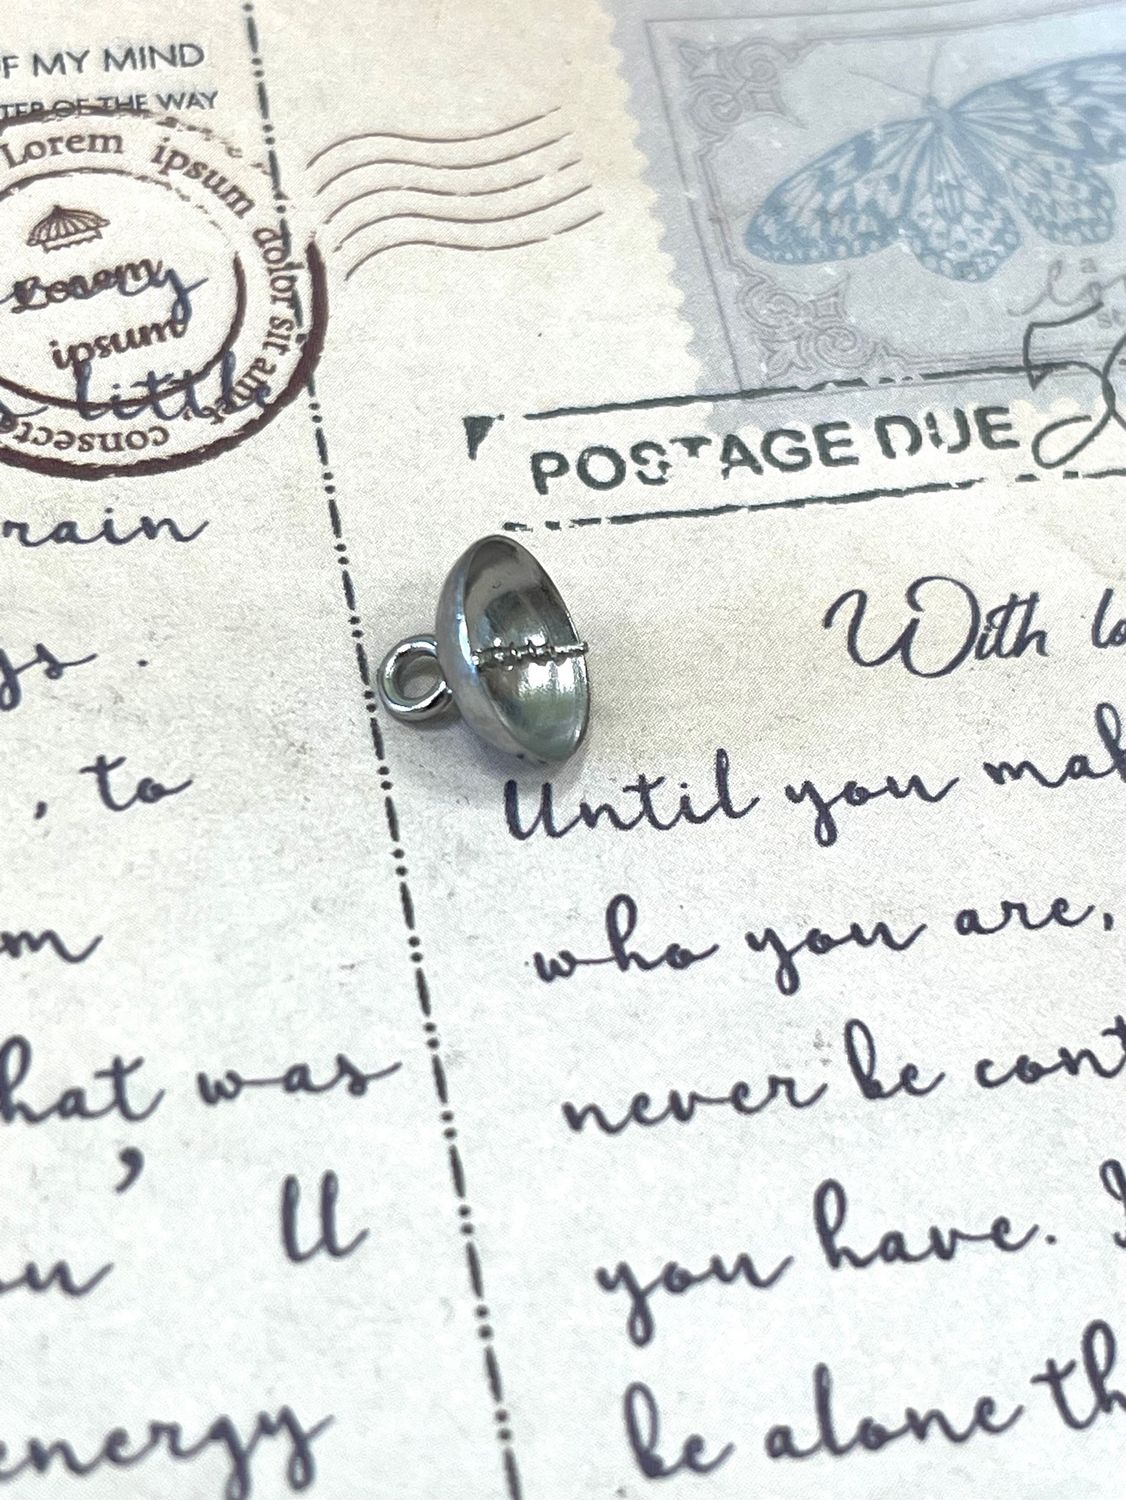 OF MY MIND
OF THE WAY
Lorem ipsum dolor sit amet, consecte
Lorem
ipsum
little
rain
POSTAGE DUE
50
With lo
, to
Until you mak
who you are,
hat was
never be cont
'll
you have.
energy
be alone th